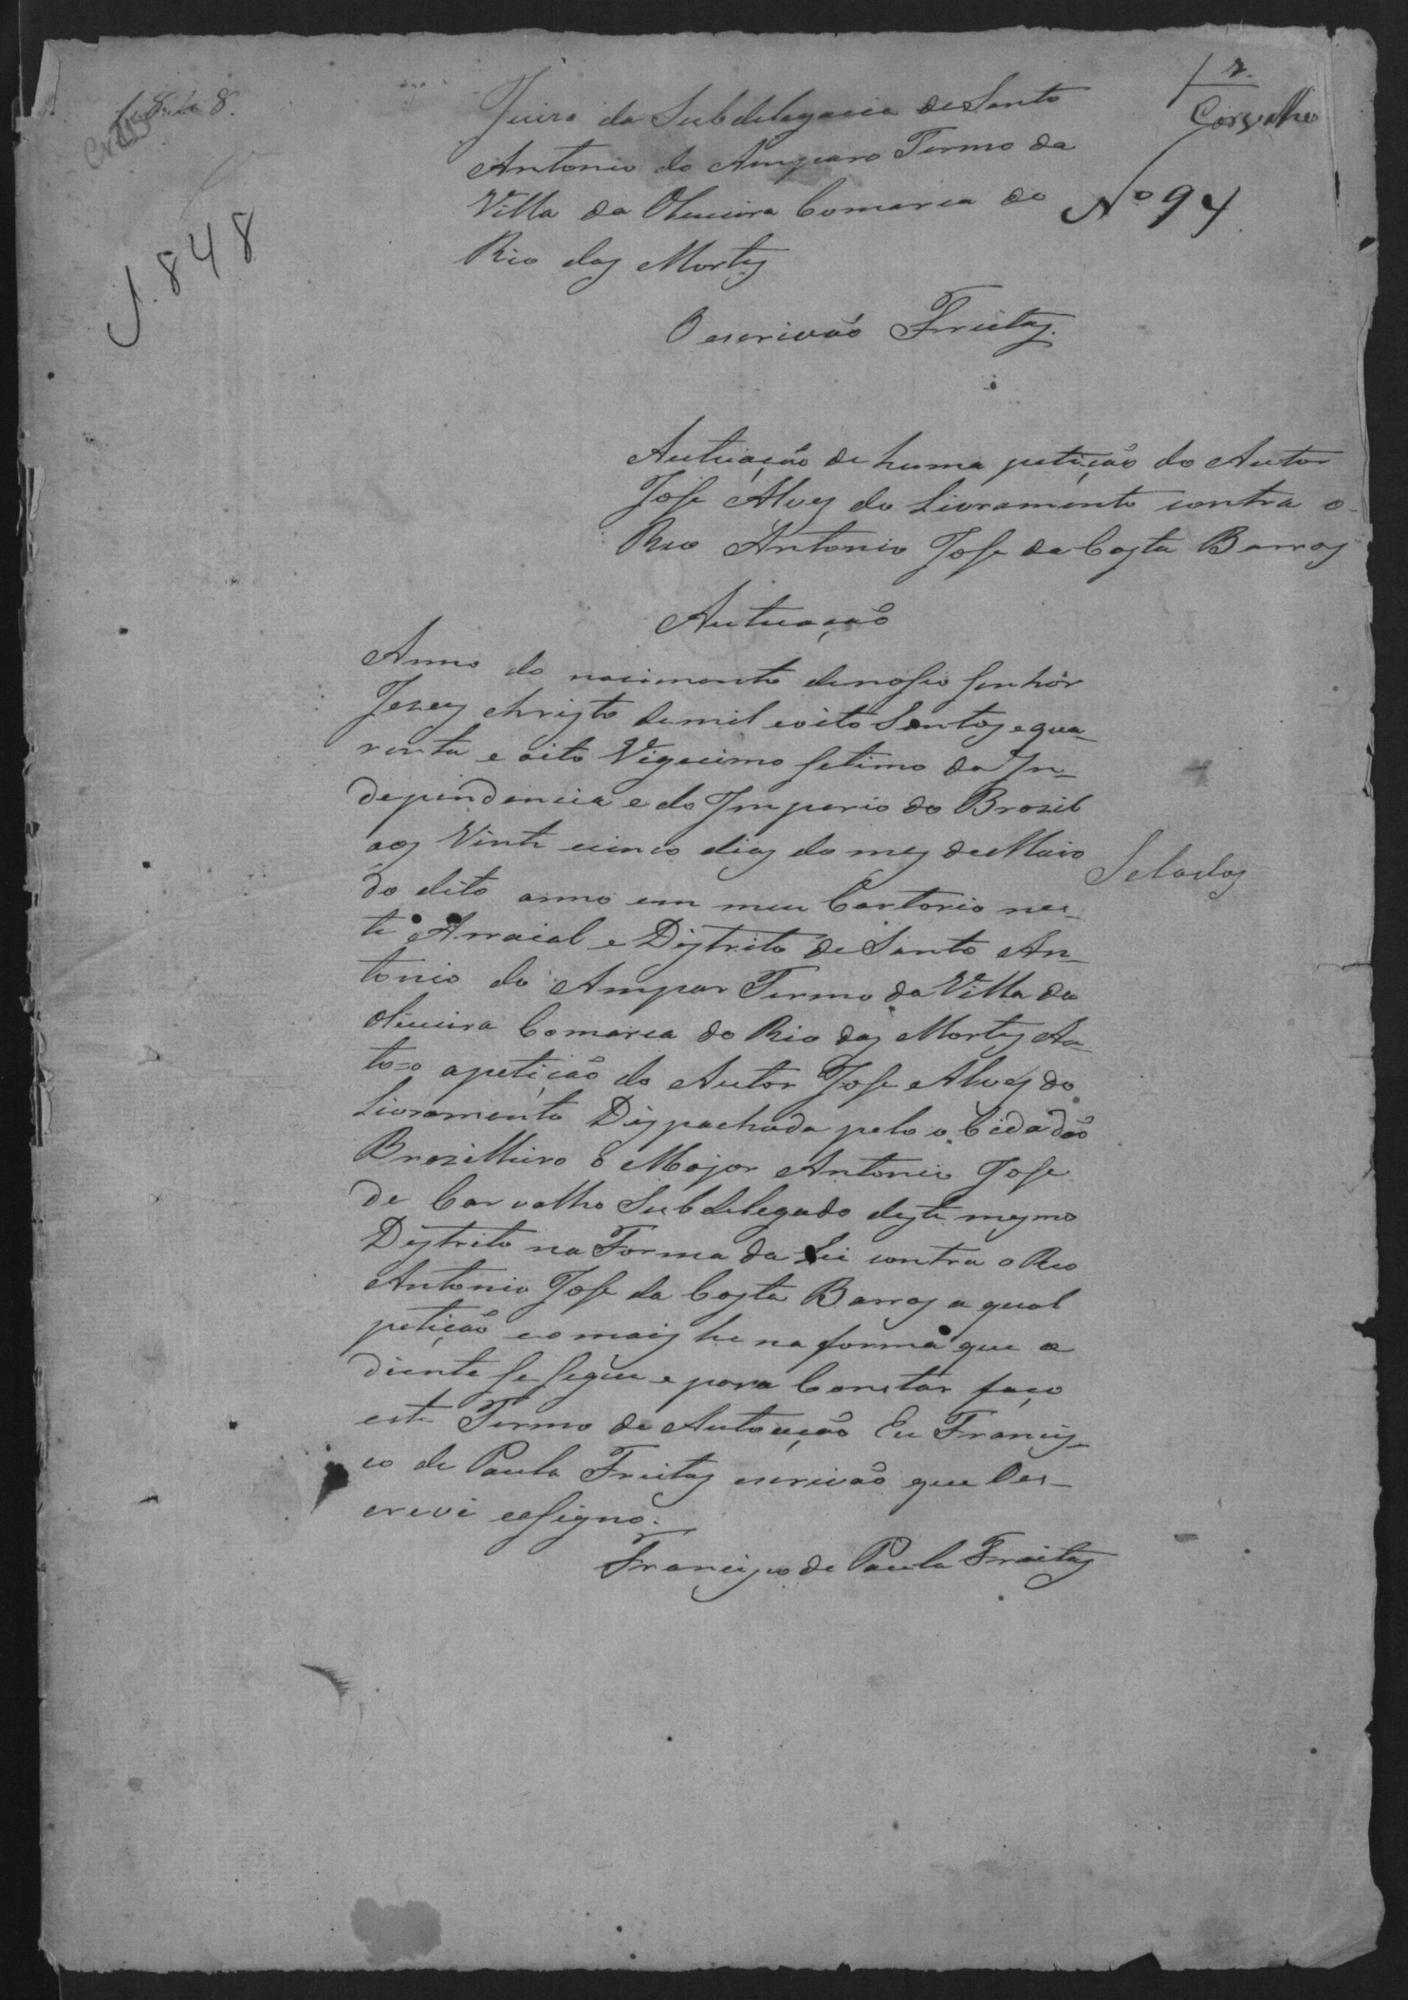 1848
Carvalho
Nº 94
Juizo da Subdelegacia de Santo
Antonio do Amparo Termo da
Villa da Oliveira Comarca do
Rio das Mortes
O escrivão Freitas.
Autuação de huma petição do Autor
Jose Alves do Livramento contra o
Reo Antonio Jose da Costa Barros
Autuação
Anno do nacimento denosso senhor
Jezus christo demil eoito Sentos e qua-
renta e oito Vigecimo setimo da In-
dependencia e do Imperio do Brazil
aos Vinte cinco dias do mes de Maio
do dito anno em meu Cartorio nes-
te Arraial e Distrito de Santo An-
tonio do Ampar Termo da Villa da
Oliveira Comarca do Rio das Mortes Au-
to=o apetição do Autor Jose Alves do
Livramento Dispachada pelo o Cidadão
Brazilleiro o Major Antonio Jose
de Carvalho Subdelegado deste mesmo
Distrito na Forma da Lei contra o Reo
Antonio Jose da Costa Barros a qual
petição eo mais he na forma que a
diente se segue e para Constar faço
este Termo de Autuação Eu Francis-
co de Paula Freitas escrivão que Oes-
crevi eassigno.
Francisco de Paula Freitas
Selados